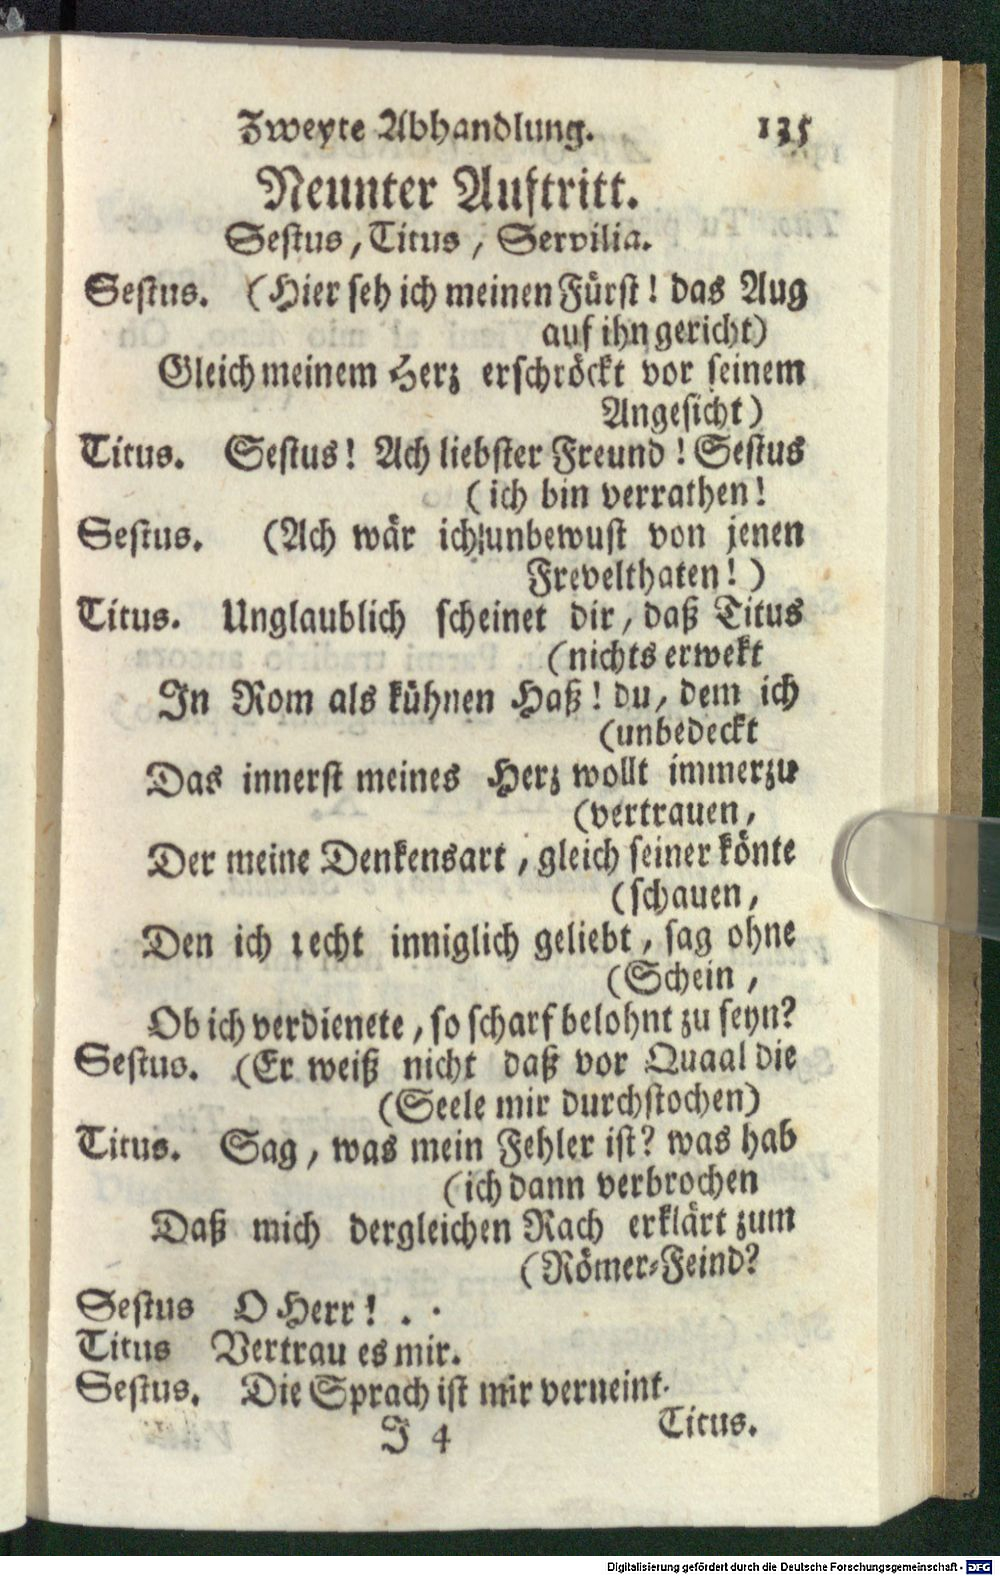 Zweyte Abhandlung. 135
Neunter Auftritt.
Sestus, Titus, Servilia.
Sestus. (Hier seh ich meinen Fürst! das Aug
auf ihn gericht)
Gleich meinem Herz erschröckt vor seinem
Angesicht)
Titus. Sestus! Ach liebster Freund! Sestus
(ich bin verrathen!
Sestus. (Ach wär ich unbewust von jenen
Frevelthaten!)
Titus. Unglaublich scheinet dir, daß Titus
(nichts erwekt
In Rom als kühnen Haß! du, dem ich
(unbedeckt
Das innerst meines Herz wollt immerzu
(vertrauen,
Der meine Denkensart, gleich seiner könte
(schauen,
Den ich recht inniglich geliebt, sag ohne
(Schein,
Ob ich verdienete, so scharf belohnt zu seyn?
Sestus. (Er weiß nicht daß vor Quaal die
(Seele mir durchstochen)
Titus. Sag, was mein Fehler ist? was hab
(ich dann verbrochen
Daß mich dergleichen Rach erklärt zum
(Römer-Feind?
Sestus O Herr! . .
Titus Vertrau es mir.
Sestus. Die Sprach ist mir verneint.
J 4 Titus.
Digitalisierung gefördert durch die Deutsche Forschungsgemeinschaft - DFG